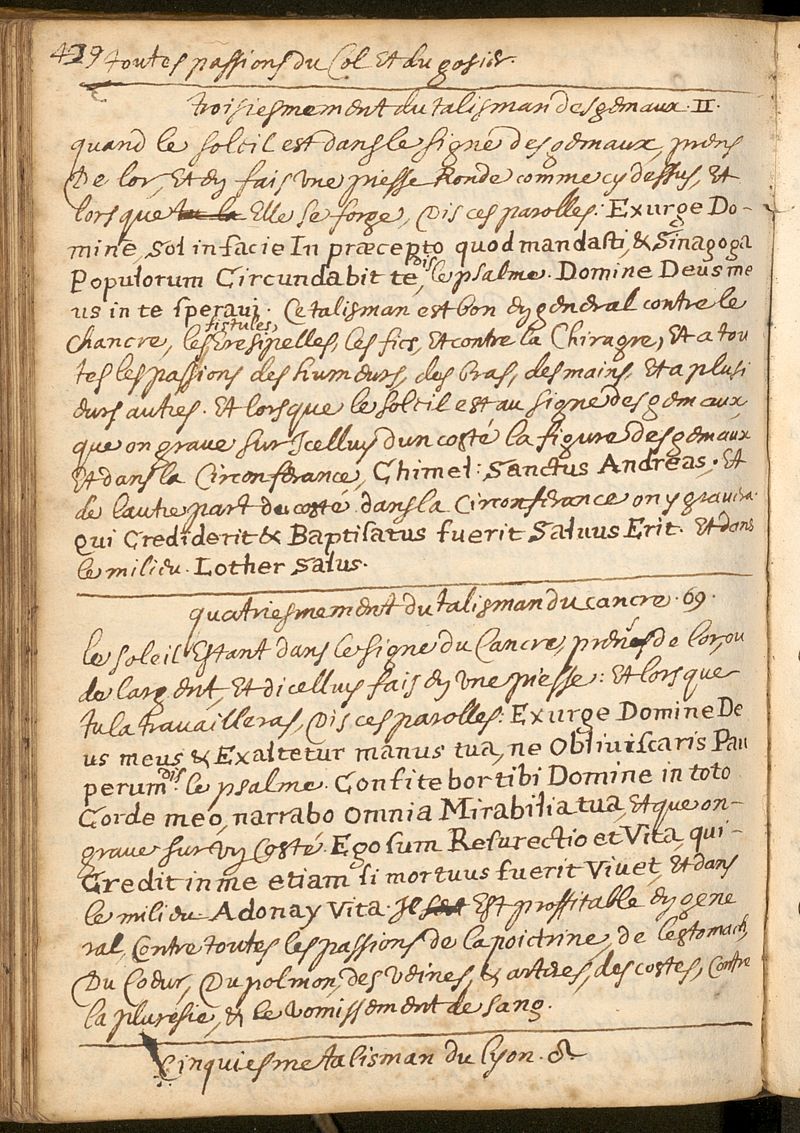 439 toutes passions du Col Et du gosier.
troisiesmement du talisman des gemaux. II.
quand le soleil est dans le signe des gemaux, prens
De lor, Et en fais une piesse Ronde comme cy dessus, Et
lors que tu la Elle se forge, Dis ces parolles: Exurge Do-
mine, Sol in facie In præcepto quod mandasti, & Sinagoga
Populorum Circundabit te, dis le psalme. Domine Deus me
us in te speraui. Ce talisman est bon en general contre le
chancre, les fistules, Eresipelles, les fics, Et contre la Chiragre, Et a tou
tes les passions des humeurs, des bras, des mains, Et a plusi
eurs autres. Et lors que le soleil est au signe des gemaux,
que on grave sur Icelluy dun costé la figure des gemaux
Et dans la Circonferance, Chimel: Sanctus Andreas. Et
de lautre part du costé dans la Circonferance on y gravera.
qui Crediderit & Baptisatus fuerit Saluus Erit. Et dans
le milieu. Lother Salus.
quatriesmement du talisman du cancre. 69.
le soleil Estant dans le signe du Cancre, prenes de lor, ou
de largent, Et dicelluy fais en une piesse: Et lors que
tu la travailleras, Dis ces parolles: Exurge Domine De
us meus & Exaltetur manus tua, ne Obliuiscaris Pau
perum. dis le psalme. Confitebor tibi Domine in toto
Corde meo, narrabo omnia Mirabilia tua, Et que on-
grave sur un Costé. Ego sum Resurectio et Vita, qui-
Credit in me etiam si mortuus fuerit Viuet, Et dans
le milieu Adonay Vita. Il Est proffitable en gene
ral, Contre toutes les passions de la poictrine, de lestomach,
Du Coeur, Du polmon, des veines, & arteres, des costes, Contre
la pluresie, & le vomissement de sang.
Cinquiesme talisman du lyon. ♌